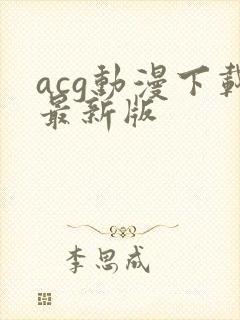 acg動漫下載
最新版
李思成